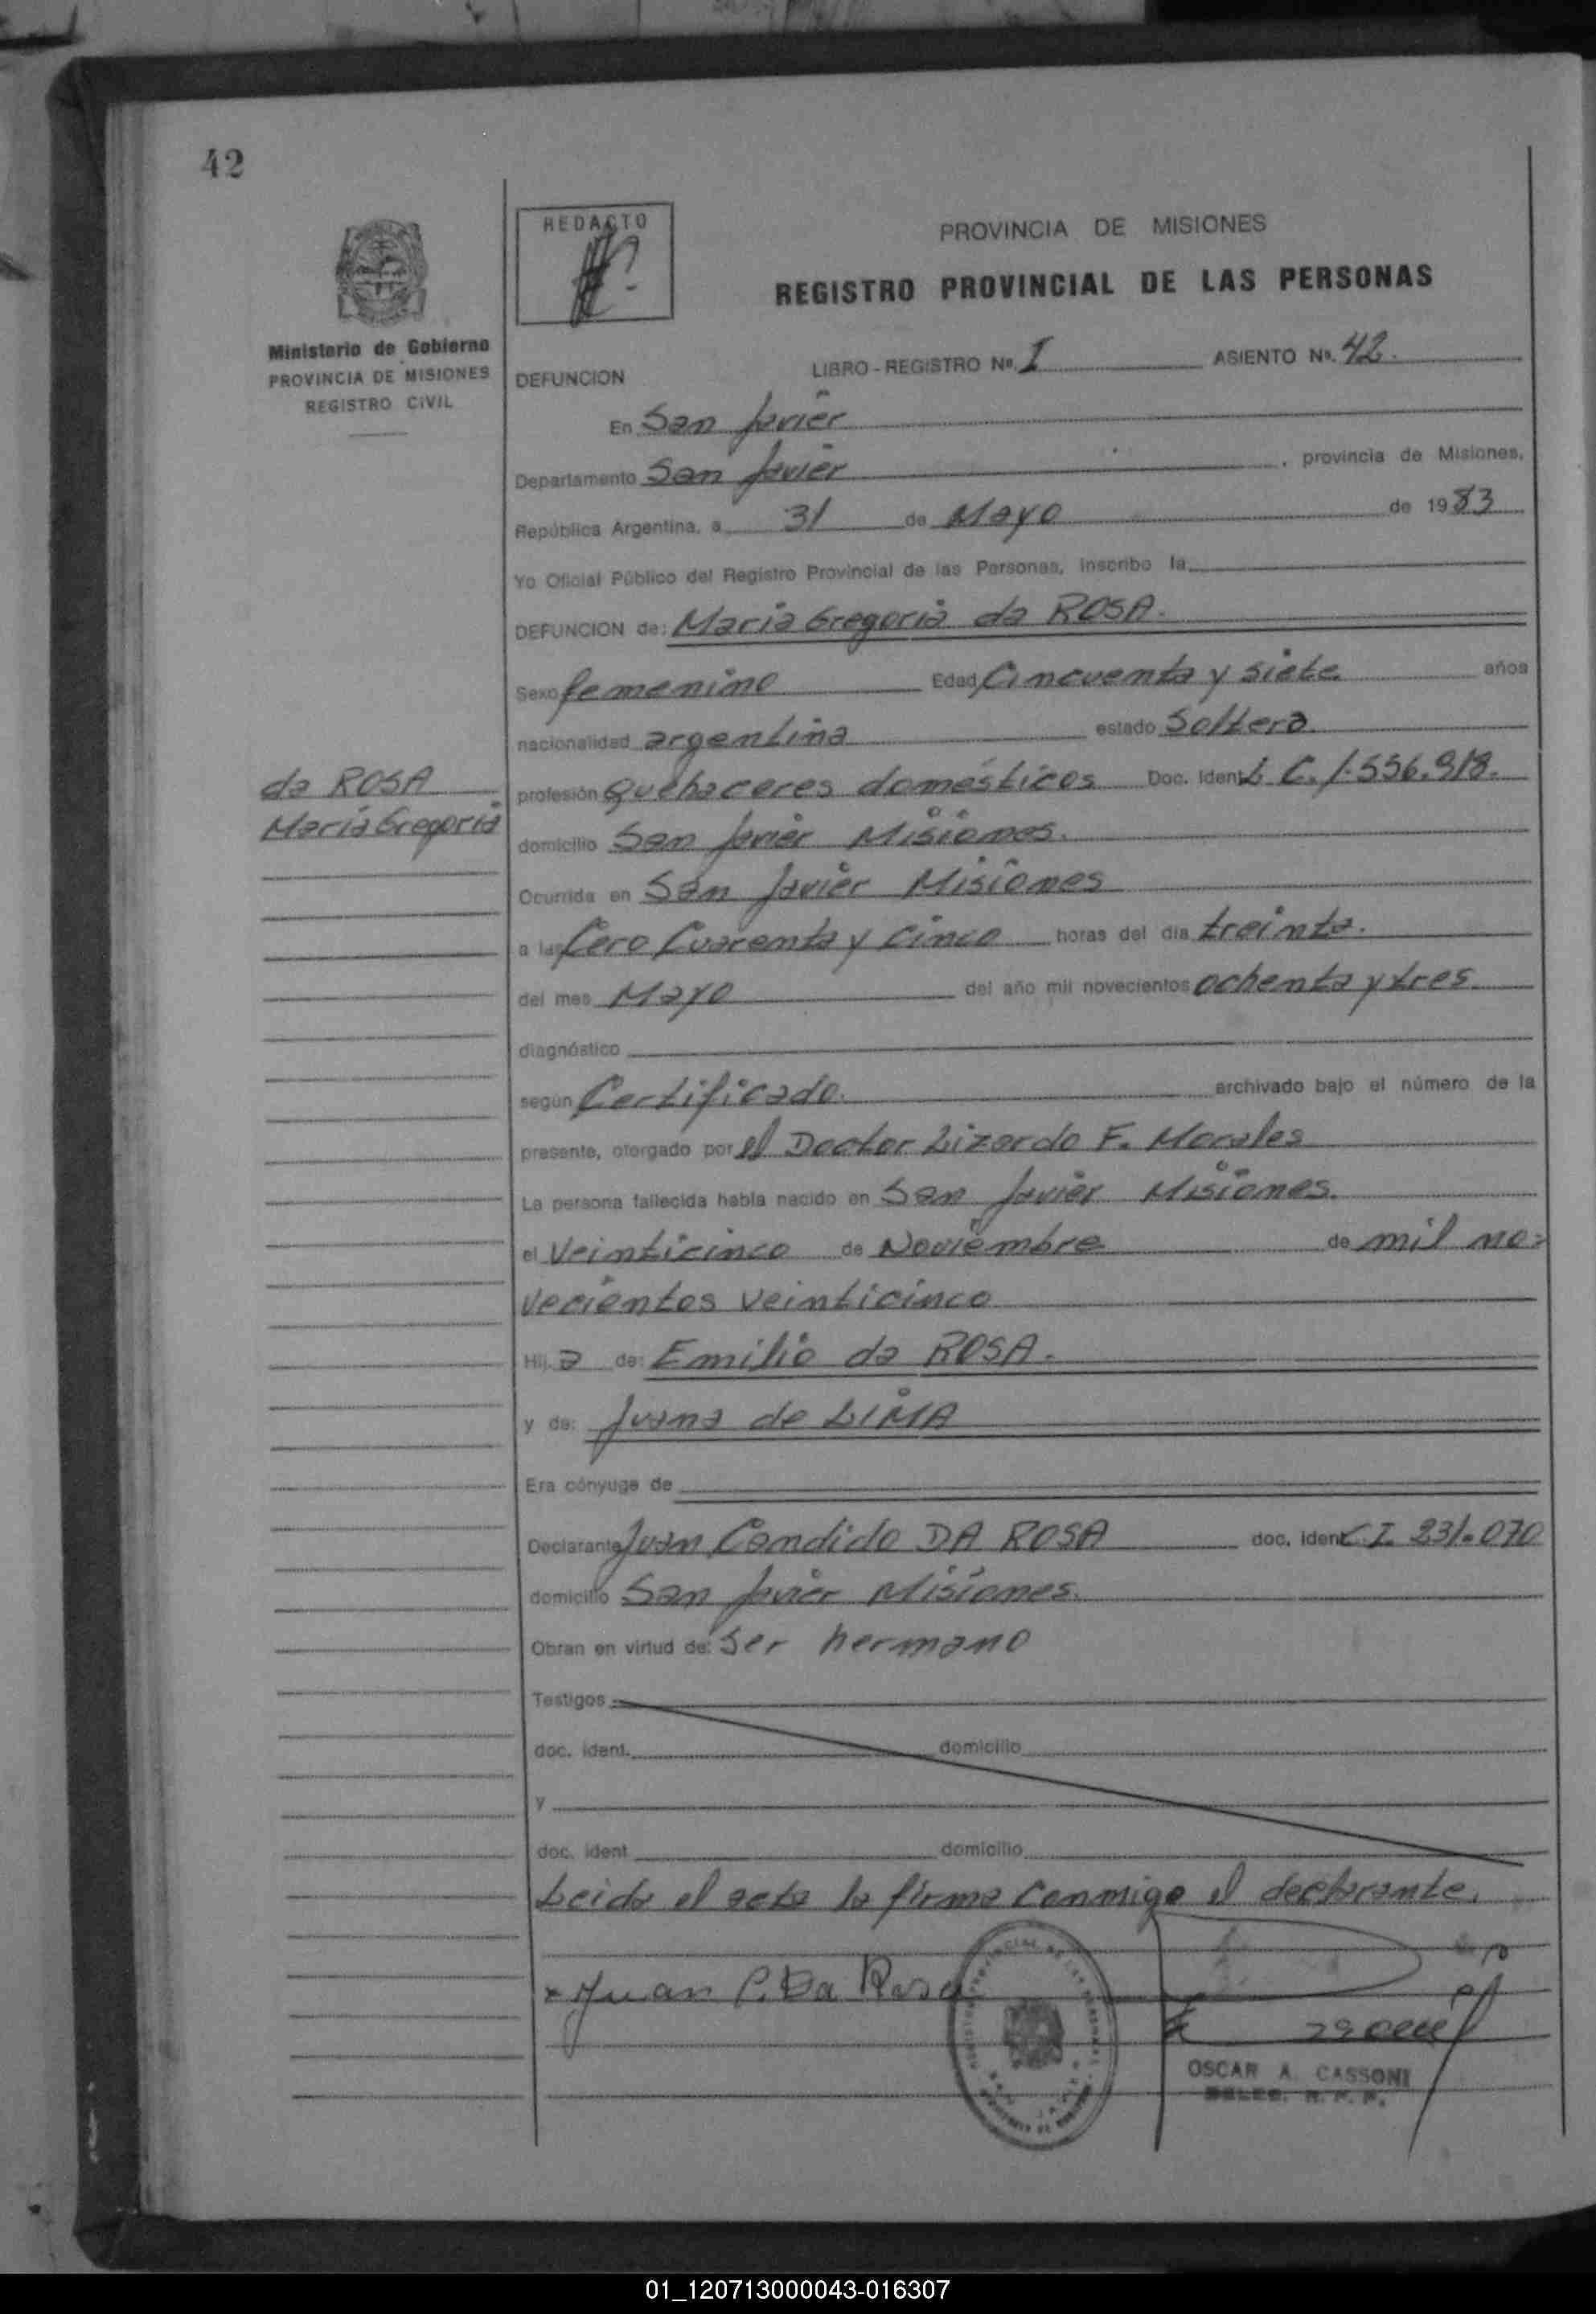 42
REDACTO
PROVINCIA DE MISIONES
REGISTRO PROVINCIAL DE LAS PERSONAS
Ministerio de Gobierno
PROVINCIA DE MISIONES
REGISTRO CIVIL
DEFUNCION LIBRO - REGISTRO Nº. I ASIENTO Nº. 42.
En San Javier
Departamento San Javier, provincia de Misiones,
República Argentina, a 31 de Mayo de 1983
Yo Oficial Público del Registro Provincial de las Personas, inscribo la
DEFUNCION de: Maria Gregoria da ROSA.
Sexo femenino Edad Cincuenta y siete años
nacionalidad argentina estado Soltera.
da ROSA
Maria Gregoria
profesión Quehaceres domésticos Doc. Ident. L.C. 1.556.918.
domicilio San Javier Misiones.
Ocurrida en San Javier Misiones
a las Cero Cuarenta y Cinco horas del día treinta.
del mes Mayo del año mil novecientos ochenta y tres
diagnóstico
según Certificado. archivado bajo el número de la
presente, otorgado por el Doctor Lizardo F. Morales
La persona fallecida había nacido en San Javier Misiones.
el Veinticinco de Noviembre de mil no=
vecientos veinticinco
Hij a de: Emilio da ROSA.
y de: Juana de LIMA
Era cónyuge de
Declarante Juan Candido DA ROSA doc. ident. C.I. 231.070
domicilio San Javier Misiones.
Obran en virtud de: Ser hermano
Testigos
doc. ident. domicilio
y
doc. ident domicilio
Leida el acta la firma Conmigo el declarante.
x Juan C. Da Rosa
OSCAR A. CASSONI
DELEG. R. P. P.
01_120713000043-016307